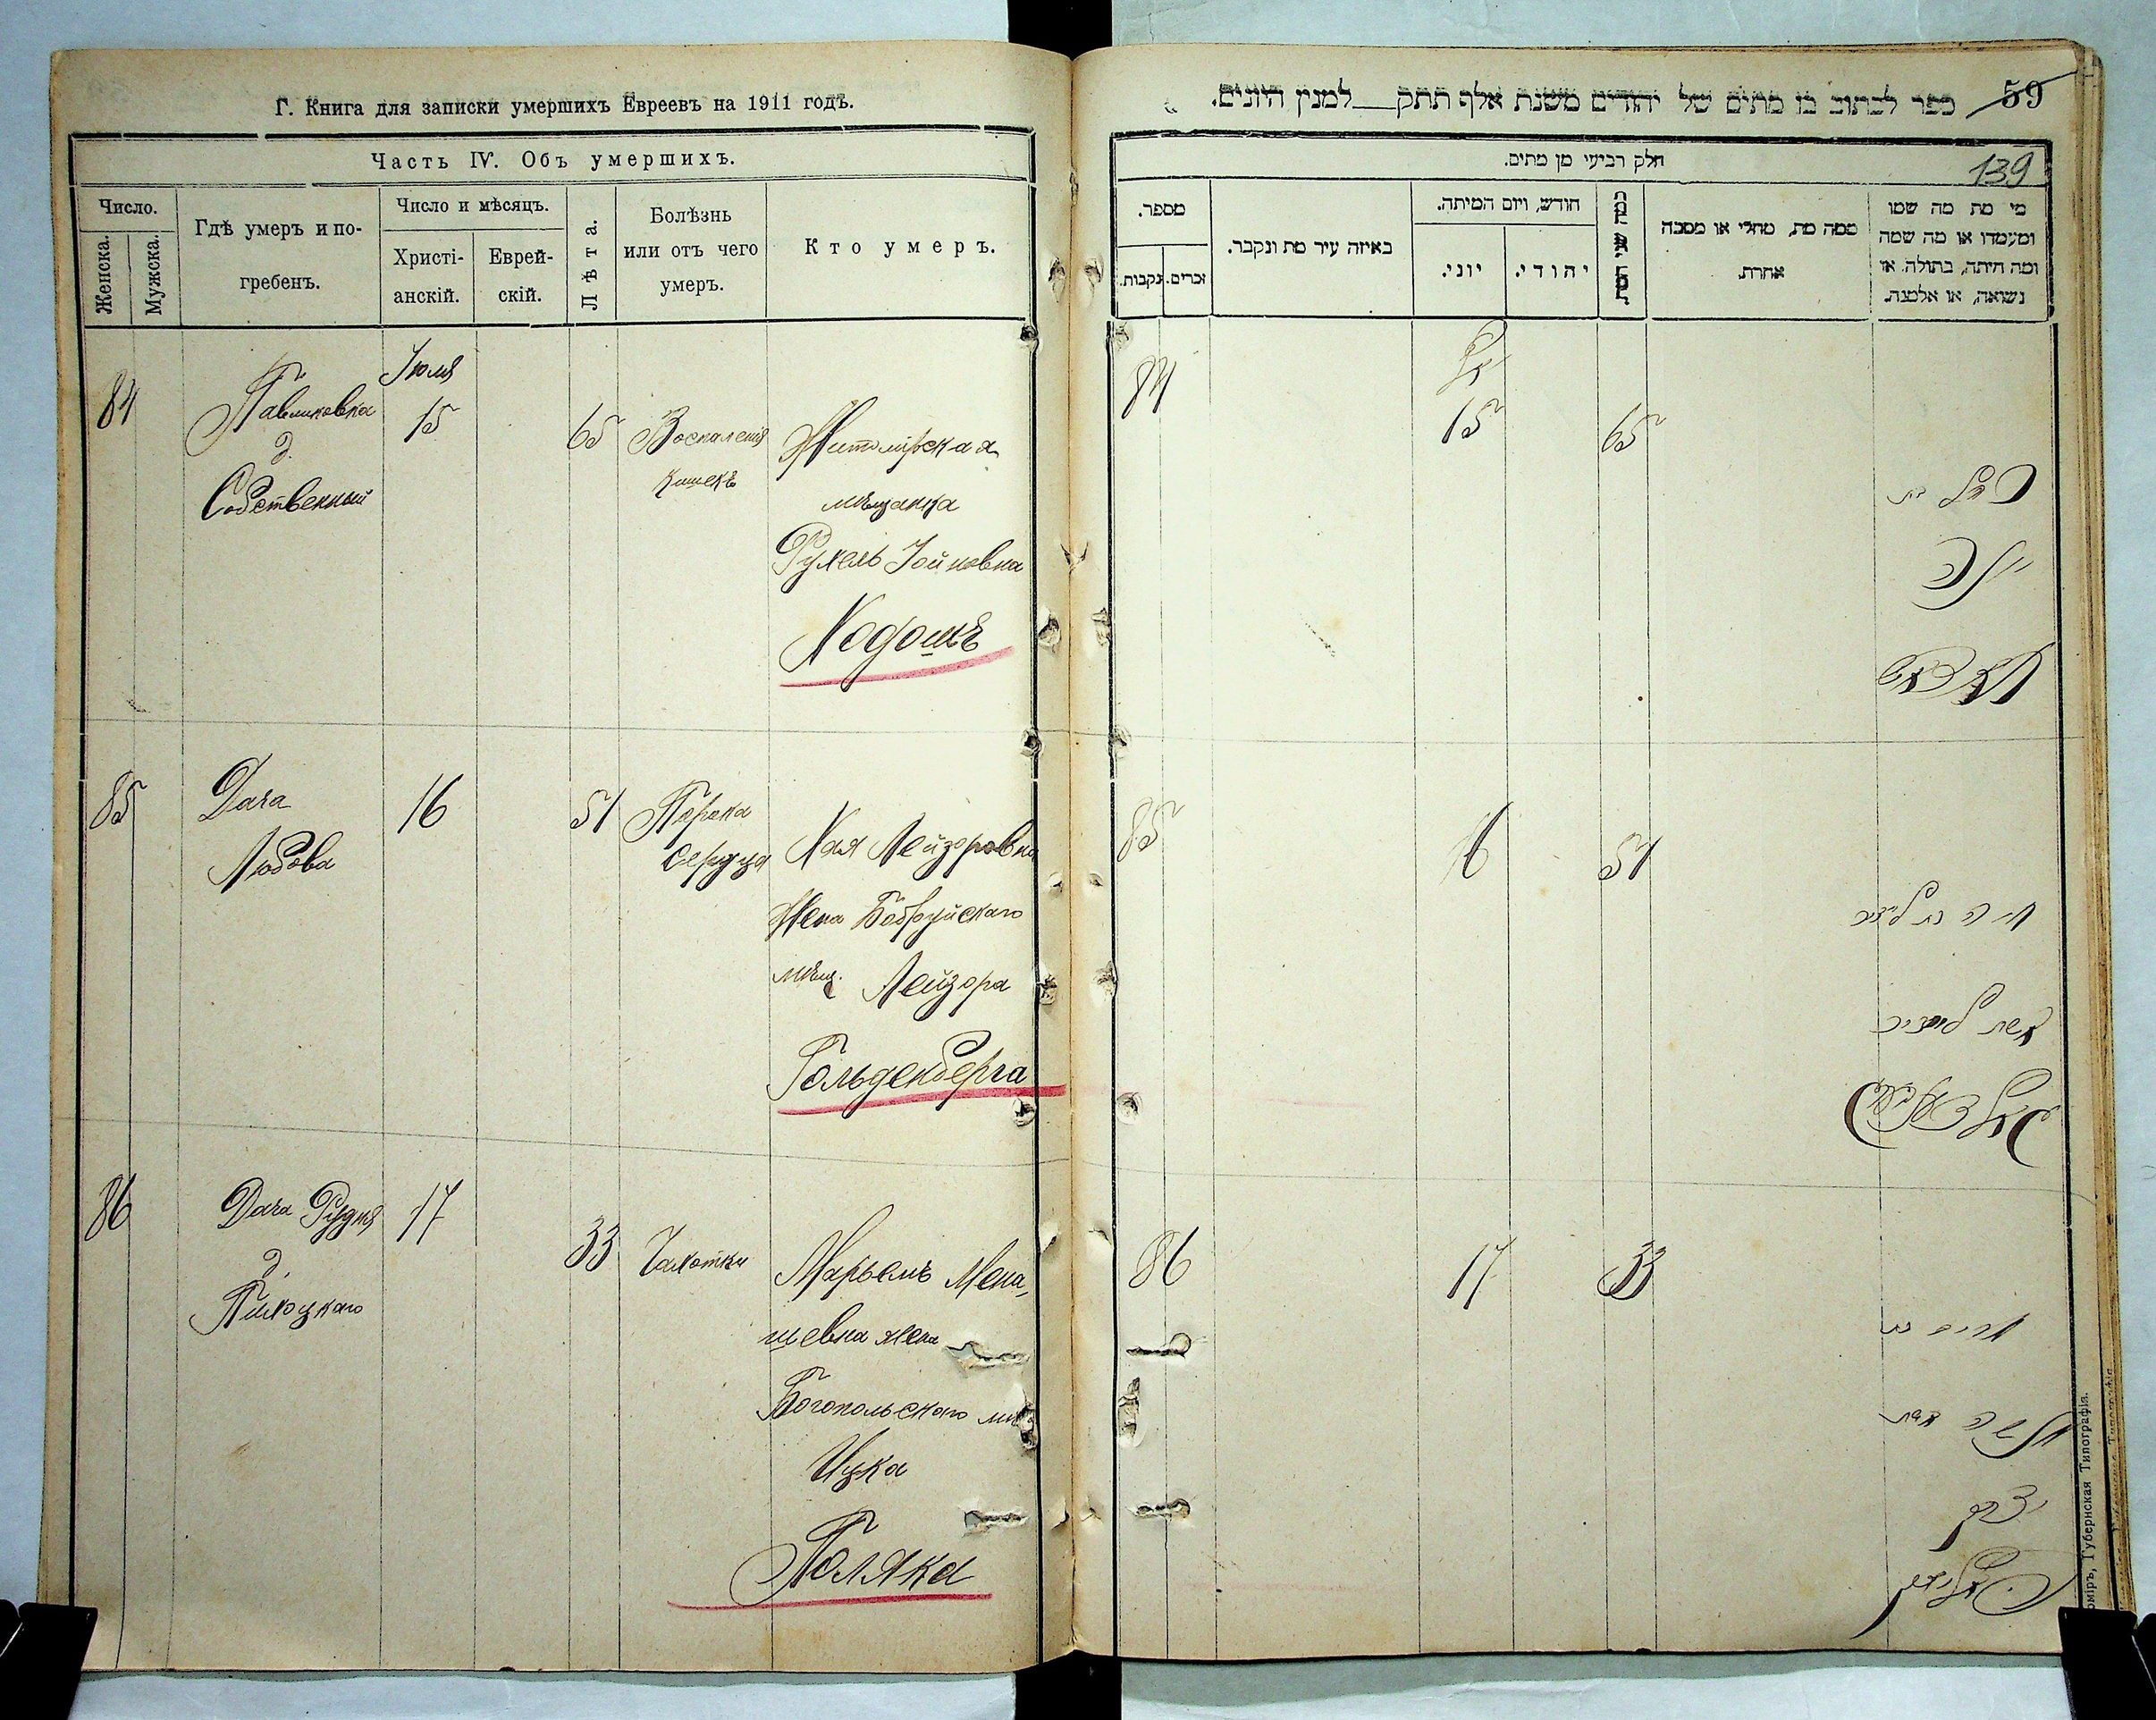 Г. Книга для записки умершихъ Евреевъ на 1911 годъ.
Часть IV. Объ умершихъ.
Число.
Женска.
Мужска.
Гдѣ умеръ и по-
гребенъ.
Число и мѣсяцъ.
Христі-
анскій.
Еврей-
скій.
Лѣта.
Болѣзнь
или отъ чего
умеръ.
Кто умеръ.
84
Павликовка
д.
Собственный
Іюля
15
65
Воспаленія
кишекъ
Житомірская
мѣщанка
Рухель Іойновна
Ходошъ
85
Дача
Любова
16
51
Порока
сердца
Хая Лейзоровна
Жена Бобруйскаго
мѣщ. Лейзора
Гольденберга
86
Дача Рудня
д.
17
33
Чахотки
Марьемъ Мена-
шевна жена
Богопольскаго
Ицка
Поляка
ספר לכתוב בו מתים של יהודים משנת אלף תתק למנין היונים.
59
חלק רביעי מן מתים.
139
מספר.
נקבות.
זכרים.
באיזה עיר מת ונקבר.
חודש, ויום המיתה.
יוני.
יהודי.
ממה מת, מחלי או מסבה
אחרת
מי מת מה שמו
ומעמדו או מה שמה
ומה היתה, בתולה או
נשואה, או אלמנה.
84
יולי
15
65
רחל בת
85
16
51
חיה בת ליזר
אשת ליזר
גאלדענבערג
86
17
33
מרים בת
מנשה אשת
יצחק
פאליאק
Губернская Типографія.